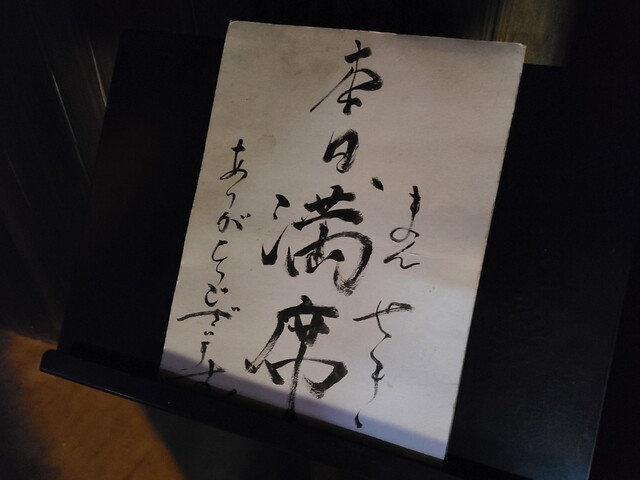 本日、満席
まんせき
ありがとうございます。